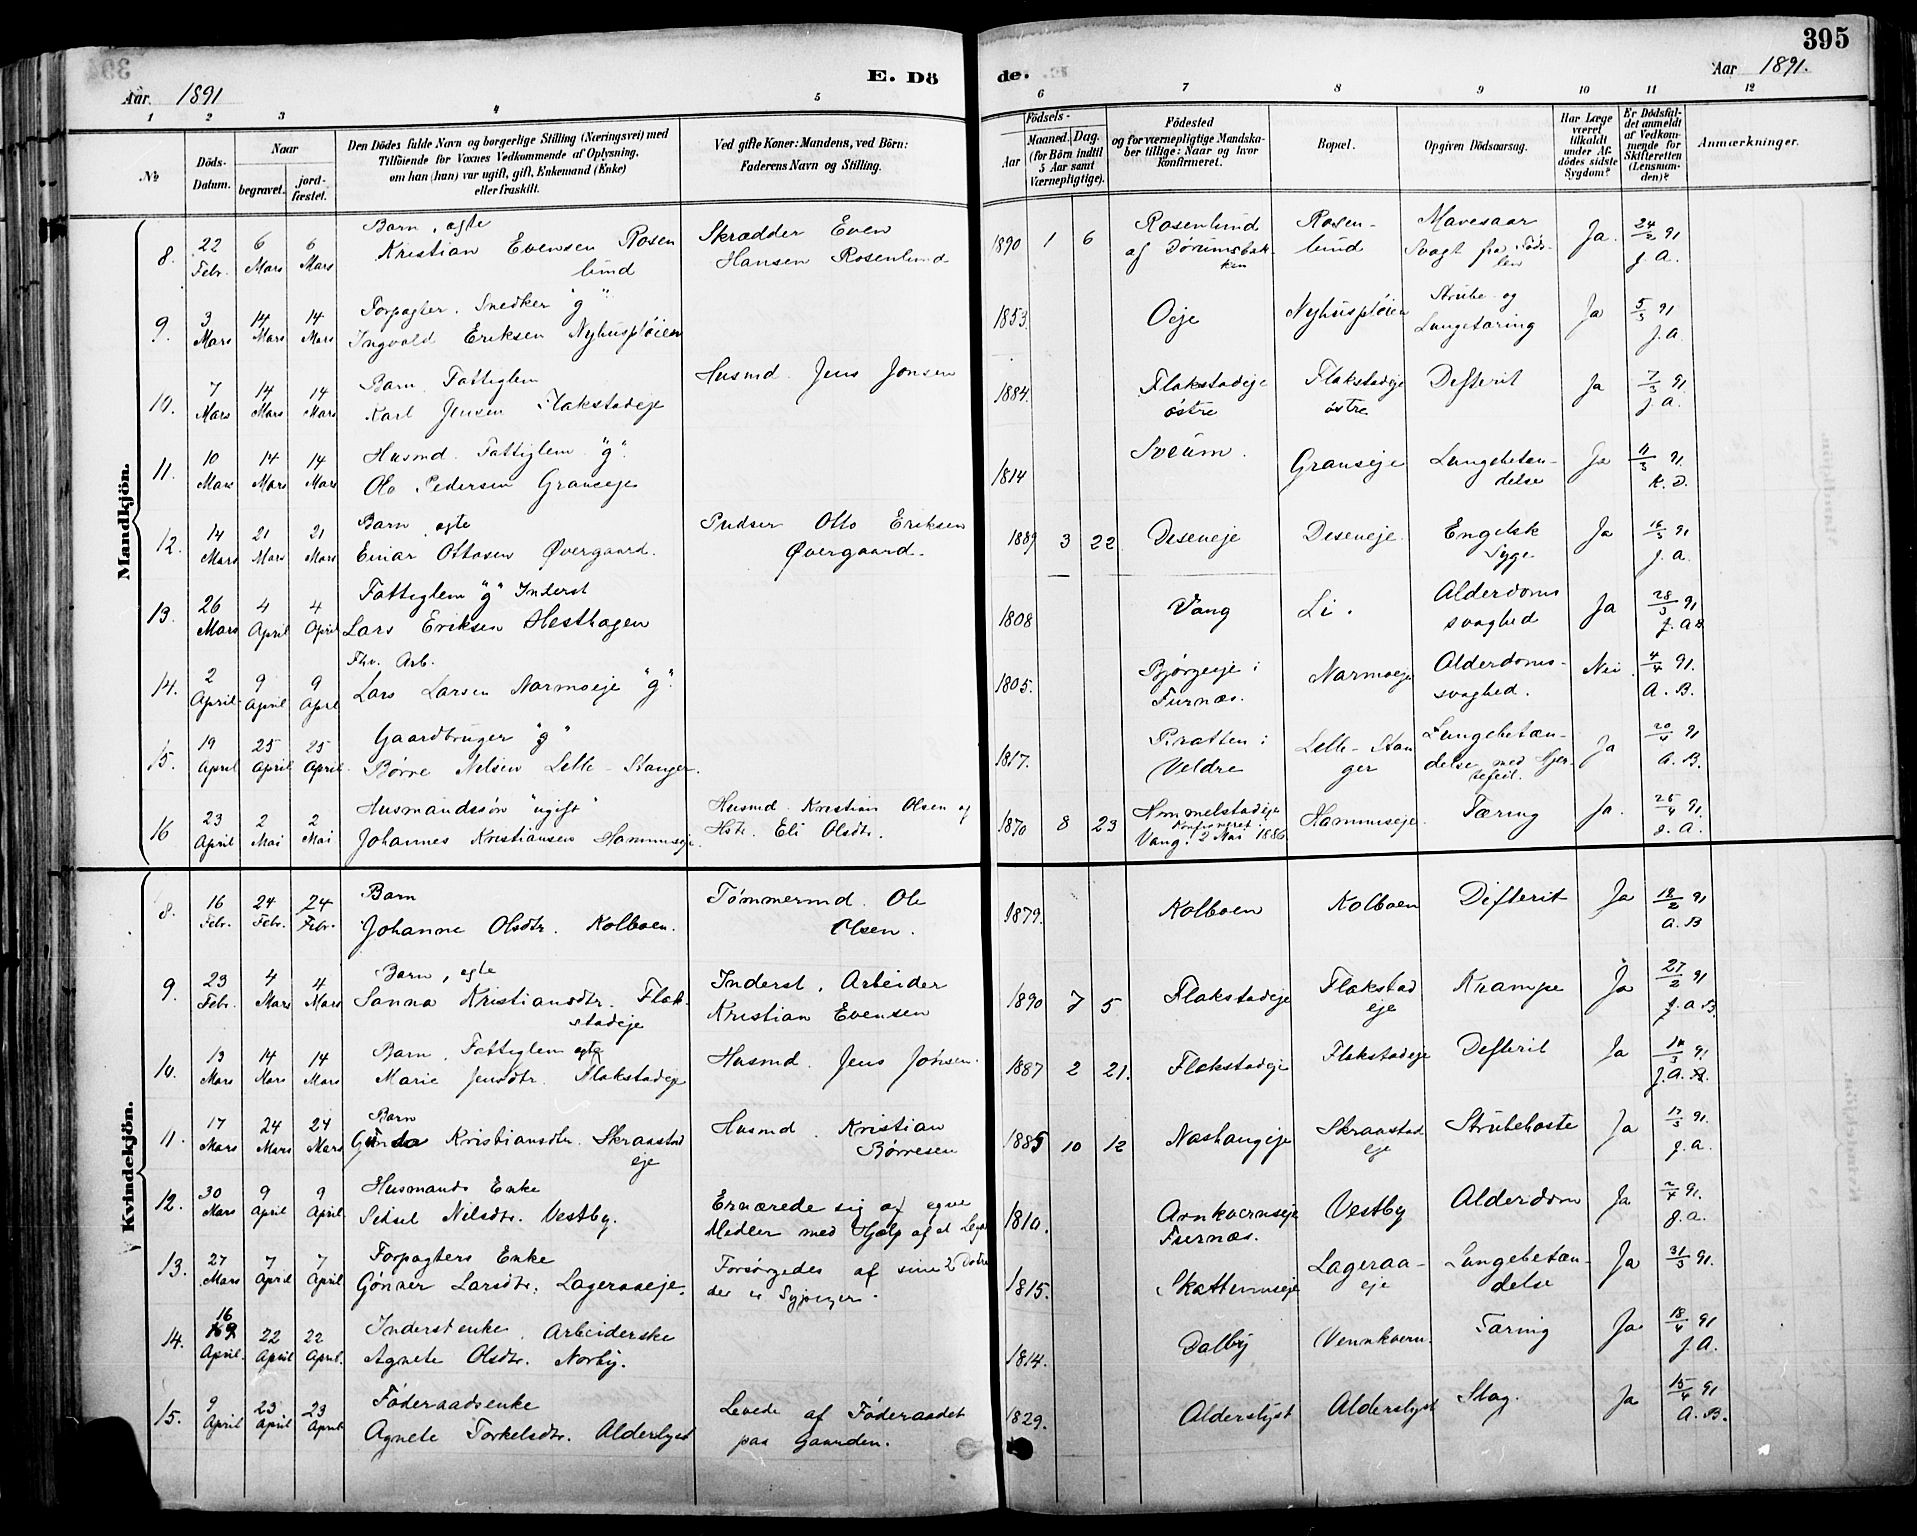 395
E. Dö de.
Aar 1891
Aar 1891.
1 2 3 4 5 6 7 8 9 10 11 12
№
Döds-Datum.
Naar
begravet.
jord-fæstet.
Den Dödes fulde Navn og borgerlige Stilling (Næringsvei) med
Tilföiende for Voxnes Vedkommende af Oplysning,
om han (hun) var ugift, gift, Enkemand (Enke)
eller fraskilt.
Ved gifte Koner: Mandens, ved Börn:
Faderens Navn og Stilling.
Födsels-
Aar
Maaned. Dag.
(for Börn indtil
5 Aar samt
Værnepligtige).
Födested
og for værnepligtige Mandska-
ber tillige: Naar og hvor
konfirmeret.
Bopæl.
Opgiven Dödsaarsag.
Har Læge
været
tilkaldt
under Af-
dödes sidste
Sygdom?
Er Dödsfal-
det anmeldt
af Vedkom-
mende for
Skifteretten
(Lensman-
den)?
Anmærkninger.
Mandkjön.
8. 22 Febr. 6 Mars 6 Mars Barn, ægte
Kristian Evensen Rosenlund
Skrædder Even
Hansen Rosenlund
1890 1 6 Rosenlund af Dørumsbakken Rosenlund Mavesaar
Svagt fra Fødselen Ja. 24/2 91 J. A.
9. 3 Mars 14 Mars 14 Mars Forpagter. Snedker "g"
Ingvald Eriksen Nyhuspløien
1853. Oeje Nyhuspløien Strube og
Lungetæring Ja 5/3 91 J. A.
10. 7 Mars 14 Mars 14 Mars Barn, Fattiglem
Karl Jensen Flakstadeje
Husmd. Jens Jonsen
1884. Flakstadeje østre Flakstadeje østre Defterit Ja 7/3 91 J. A.
11. 10 Mars 14 Mars 14 Mars Husmd. Fattiglem "g".
Ole Pedersen Granseje
1814 Sveum. Granseje Lungebetændelse Ja 11/3 91. K. D.
12. 14 Mars 21 Mars 21 Mars Barn, ægte
Einar Ottosen Øvergaard.
Pudser Otto Eriksen
Øvergaard.
1889 3 22 Deseneje Deseneje. Engelsk
Syge. Ja 16/3 91 J. A.
13. 26 Mars 4 April 4 April Fattiglem "g" Inderst
Lars Eriksen Hesthagen
1808 Vang Li. Alderdoms
svaghed Ja 28/3 91 J. A.
14. 2 April 9 April 9 April Fhv. Arb.
Lars Larsen Narmoeje "g".
1805. Bjørgeeje i
Furnæs. Narmoeje Alderdoms-
svaghed. Nei. 4/4 91. A. B.
15. 19 April 25 April 25 April Gaardbruger "g"
Børre Nilsen Lille-Stanger.
1817. Pratten i
Veldre Lille-Stanger Lungebetændelse med Hjertefeil. Ja 20/4 91 A. B.
16 23 April 2 Mai 2 Mai Husmandssøn "ugift"
Johannes Kristiansen Hommseje.
Husmd. Kristian Olsen og
Hstr. Eli Olsdtr.
1870 8 23 Hommelstadeje
Konfirmeret i
Vang. 2 Mai 1886 Hommseje. Tæring Ja. 25/4 91. J. A.
Kvindekjön.
8. 16 Febr. 24 Febr. 24 Febr. Barn
Johanne Olsdtr. Kolboen.
Tømmermd. Ole
Olsen.
1879. Kolboen Kolboen Difterit Ja 18/2 91 A. B
9. 23 Febr. 4 Mars 4 Mars Barn, ægte
Sanna Kristiansdtr. Flakstadeje
Inderst, Arbeider
Kristian Evensen
1890 7 5 Flakstadeje Flakstadeje Krampe Ja 27/2 91 J. A. B.
10. 13 Mars 14 Mars 14 Mars Barn, Fattiglem ægte
Marie Jensdtr. Flakstadeje
Husmd. Jens Jonsen.
1887 2 21. Flakstadeje Flakstadeje Defterit Ja 14/3 91. J. A.
11. 17 Mars 24 Mars 24 Mars Barn
Gunda Kristiansdtr. Skraastadeje
Husmd. Kristian
Børresen
1885 10 12 Næshangeje Skraastadeje Strubehoste Ja 17/3 91. J. A.
12. 30 Mars 9 April 9 April Husmands Enke
Sidsel Nilsdtr. Vestby.
Ernærede sig af egne
Midler med Hjælp af et Legat
1810. Arnkvernseje
Furnæs. Vestby Alderdom Ja 2/4 91. J. A.
13. 27 Mars 7 April 7 April Forpagters Enke
Gønner Larsdtr. Lageraaeje.
Forsørgedes af sine 2 Døtre
der er Sypiger.
1815. Skattumseje Lageraaeje Lungebetændelse Ja 31/3 91.
14. 16 April. 22 April 22 April. Inderstenke, Arbeiderske
Agnete Olsdtr. Norby.
1814. Dalby Vennkvern. Tæring Ja 18/4 91 J. A.
15. 9 April 23 April 23 April Føderaadsenke
Agnete Torkelsdtr. Alderslyst
Levede af Føderaadet
paa Gaarden.
1829. Alderslyst Alderslyst Slag. Ja 15/4 91 A. B.